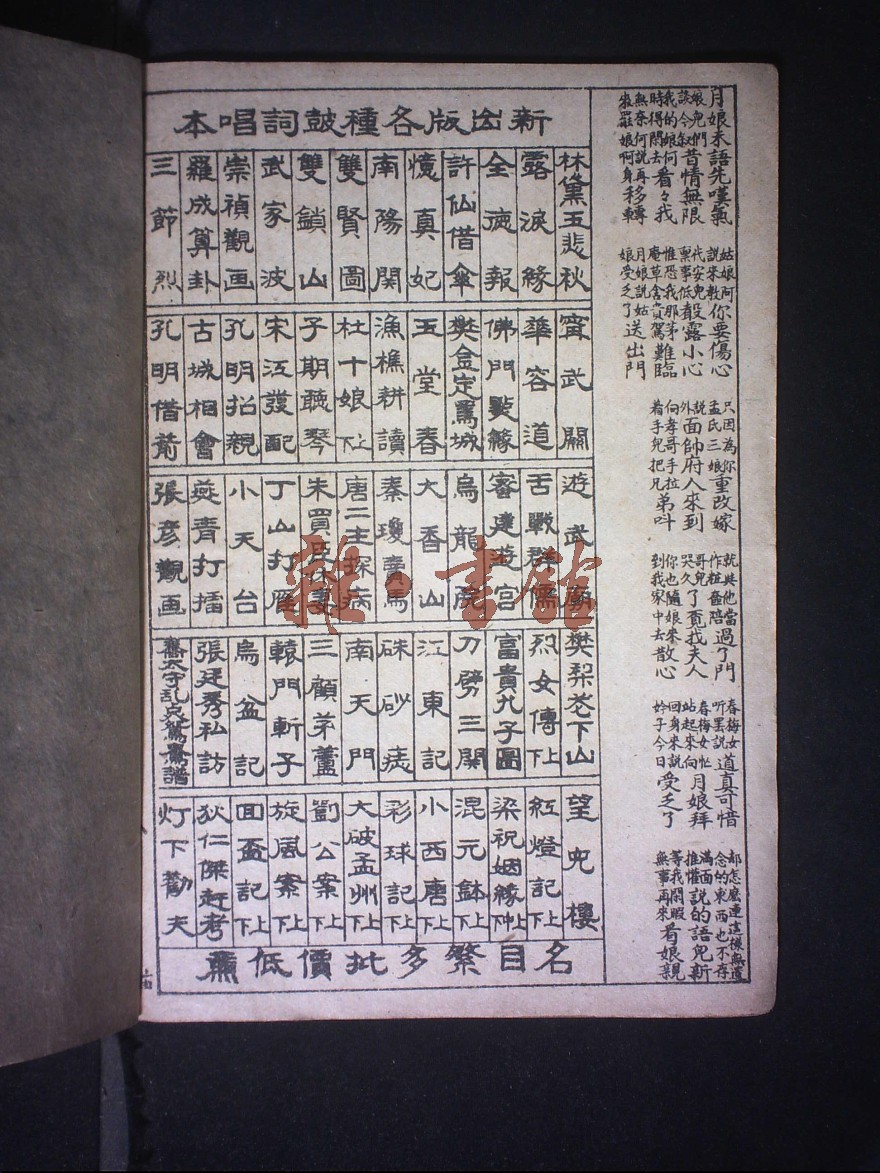 月娘未語先嘆氣
姑娘阿說來教你要傷心
只因為你孟氏三娘重改嫁
就與他當作粧奩陪過了門
春梅女听罷說道真可惜
却怎麼連這樣無道念的東西也不存
娘兒們談今敘昔情無限
代安兒稟事低露小心
說外面帥府人來到
哥兒哭久了賁我夫人
春梅女忙站起來向月娘拜
滿面推懽說的語兒新
我的娘何時得閒去看々我
惟恐我那茅庵草舍貴駕難臨
向孝哥手拉着手兒把兄弟呌
你也隨娘來到我家中去散心
回身來說妗子今日受乏了
等我閒暇無事再來看娘親
無奈何說再羅娘啊身移轉
月娘說姑娘受乏了送出門
新出版各種鼓詞唱本
林黛玉悲秋
露淚緣
全德報
許仙借傘
憶真妃
南陽關
雙賢圖
雙鎖山
武家波
崇禎觀画
羅成算卦
三節烈
甯武關
華容道
佛門點緣
樊金定罵城
玉堂春
漁樵耕讀
杜十娘上下
子期聽琴
宋江發配
孔明招親
古城相會
孔明借箭
遊武廟
舌戰群儒
審建遊宮
烏龍院
大香山
秦瓊賣馬
唐二主探病
朱買臣休妻
丁山打雁
小天台
燕青打擂
張彥觀画
樊梨花下山
烈女傳上下
富貴九子圖
刀劈三關
江東記
硃砂痣
南天門
三顧茅蘆
轅門斬子
烏盆記
張廷秀私訪
喬太守乱点鴛鴦譜
望兒樓
紅燈記上下
梁祝姻緣上中下
混元鉢上下
小西唐上下
彩球記上下
大破孟州上下
劉公案上下
旋風案上下
回盃記上下
狄仁傑赶考
灯下勸夫
名目繁多批價低薰
雜·書館